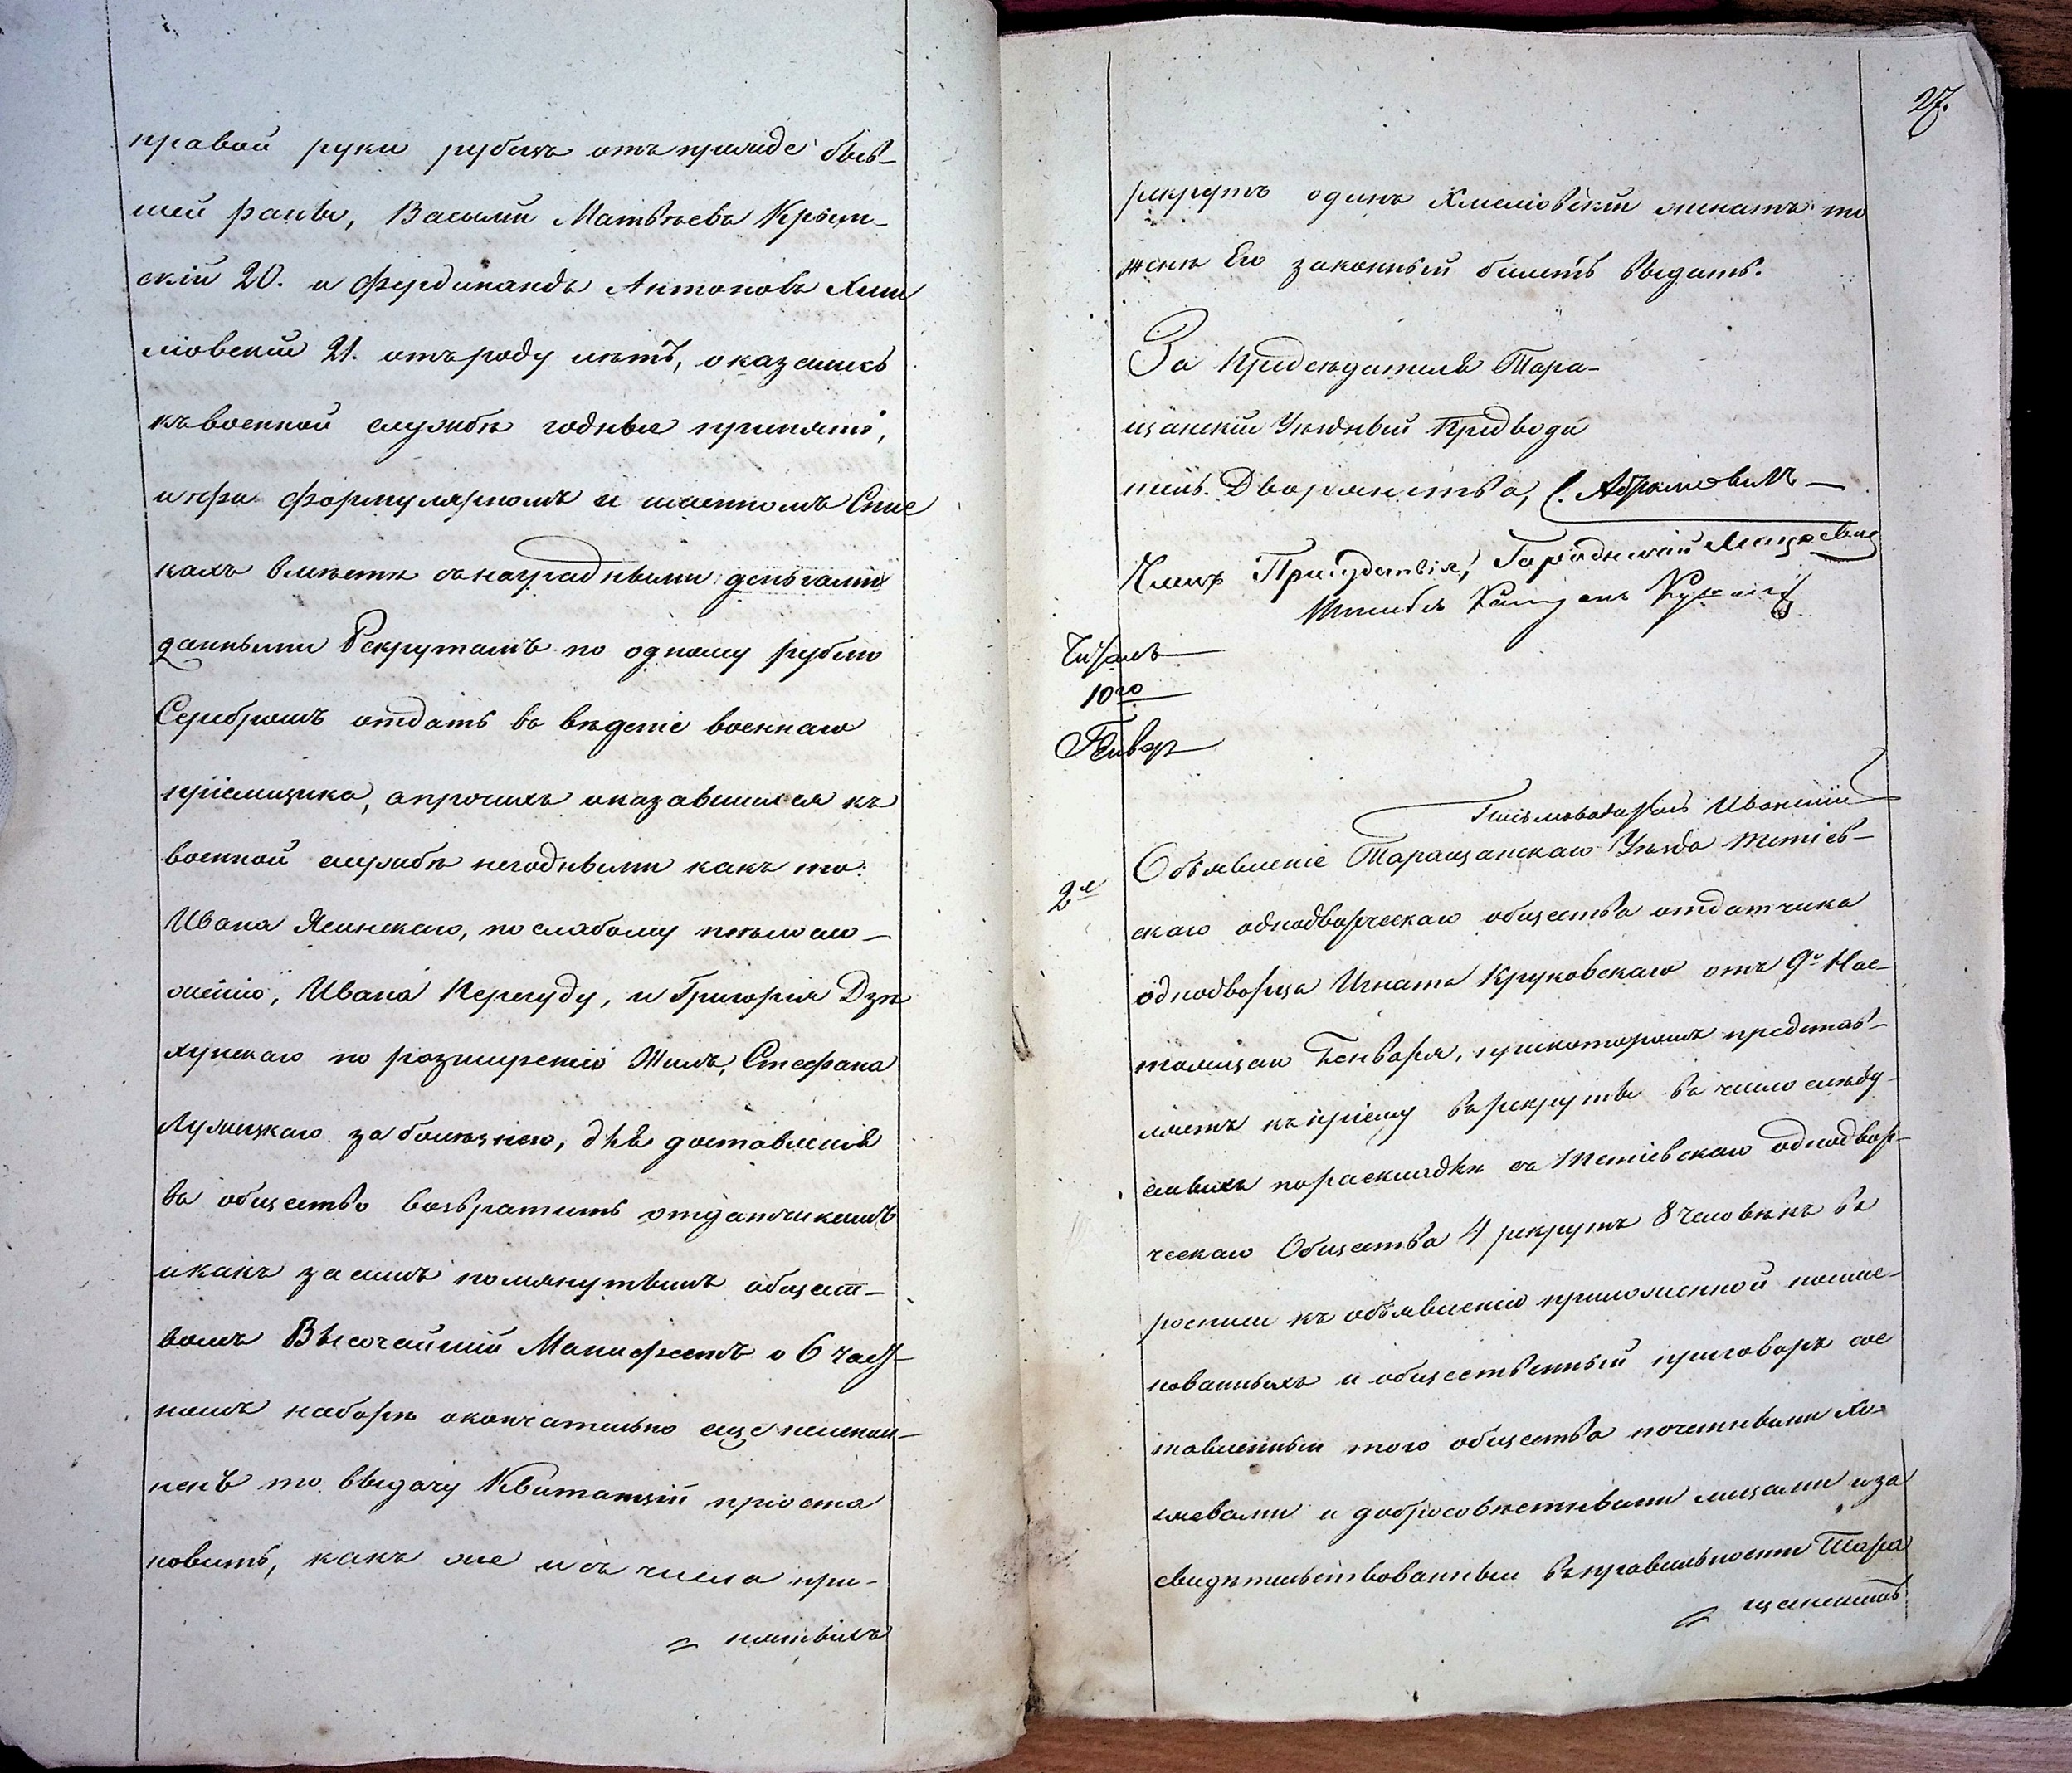 правой руки рубецъ отъ прежде быв-
шей раны, Василій Матвѣевъ Крым-
скій 20. и Фердинандъ Антоновъ Хми
ліовскій 21. отъ роду лѣтъ, оказались
къ военной службѣ годные приняті,
и при формулярномъ и имянномъ Спис
кахъ вмѣстѣ съ наградными деньгами
данными Рекрутамъ по одному рублю
Серебромъ отдать въ вѣденіе военнаго
пріемщика, а прочихъ оказавшихся къ
военной службѣ негодными какъ то:
Ивана Ясинскаго, по слабому тѣлосло-
женію, Ивана Перегуду, и Григорія Дзѣ
хунскаго по розширенію Жилъ, Стефана
за болѣзнію, для доставленія
въ общество возвратить отдатчикамъ
и какъ за симъ помянутымъ общест-
вомъ Высочайшій Манифестъ о 6 част-
номъ наборѣ окончательно еще неиспол-
ненъ то выдачу Квитанцій пріоста
новить, какъ же и съ числа при-
= нятыхъ
27.
рекрутъ одинъ Хмеліовскій женатъ то
женѣ Его законный билетъ выдать.
За Предсѣдателя Тара-
щанскій Уѣздный Предводи
тель Дворянства, С. Абрамовичъ
Членъ Присудствія, Городничій
Штабсъ Капитанъ
Читалъ
10го
Генвар
Письмоводитель
2я
Объявленіе Таращанскаго Уѣзда Тетіев-
скаго однодворческаго общества отдатчика
однодворца Игната Круковскаго отъ 9го Нас-
тоящаго Генваря, при которомъ представ-
ляетъ къ пріему въ рекруты въ число слѣду-
емыхъ по раскладкѣ съ Тетіевскаго однодвор-
ческаго Общества 4 рекрутъ 8 человѣкъ въ
росписи къ объявленію приложенной поиме-
нованныхъ и общественный приговоръ сос
тавленный того общества почетными хо-
зяевами и добросовѣстными лицами и за
свидѣтельствованный въ правильности Тара
= щанскимъ